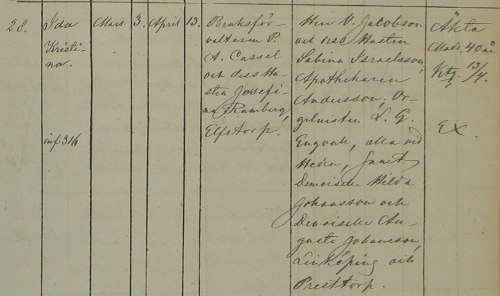 28.
Ida
Kristi-
na.
inf 316
Mars.
3.
April
13.
Bruksför-
valtaren P.
A. Cassel
och dess Hu-
stru Josefi-
na Ramberg,
Elfstorp.
Herr V. Jacobson
och dess Hustru
Sabina Israelsson,
Apothekaren
Andersson, Or-
gelnisten L. G.
Engvall, alla vid
Hedra, samt
Demoiselle Hilda
Johansson och
Demoiselle Au-
gusta Johansson,
Linköping och
Presttorp.
Äkta
Mod. 40 år
Ktg. 13/4.
Ex.